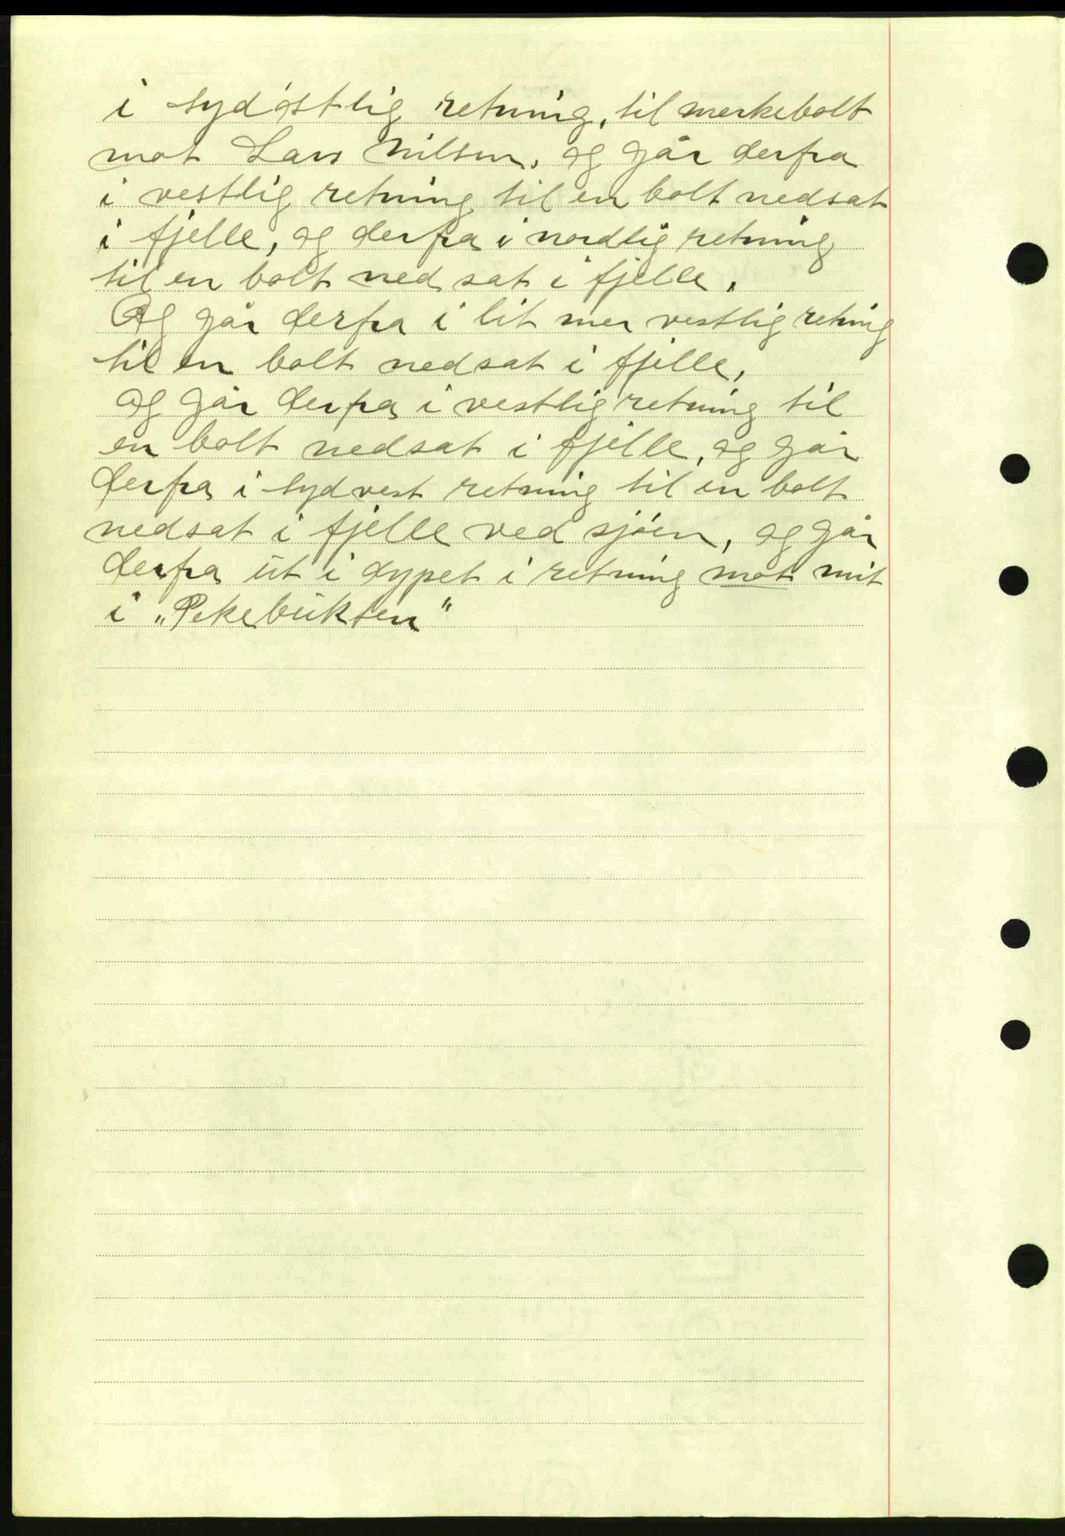 i sydøstlig retning, til merkebolt
mot Lars Nilsen, og går derfra
i vestlig retning til en bolt nedsat
i fjelle, og derfra i nordlig retning
til en bolt nedsat i fjelle.
Og går derfra i lit mer vestlig retning
til en bolt nedsat i fjelle,
og går derfra i vestlig retning til
en bolt nedsat i fjelle, og går
derfra i sydvest retning til en bolt
nedsat i fjelle ved sjøen, og går
derfra ut i dypet i retning mot mit
i „Pekebukten"